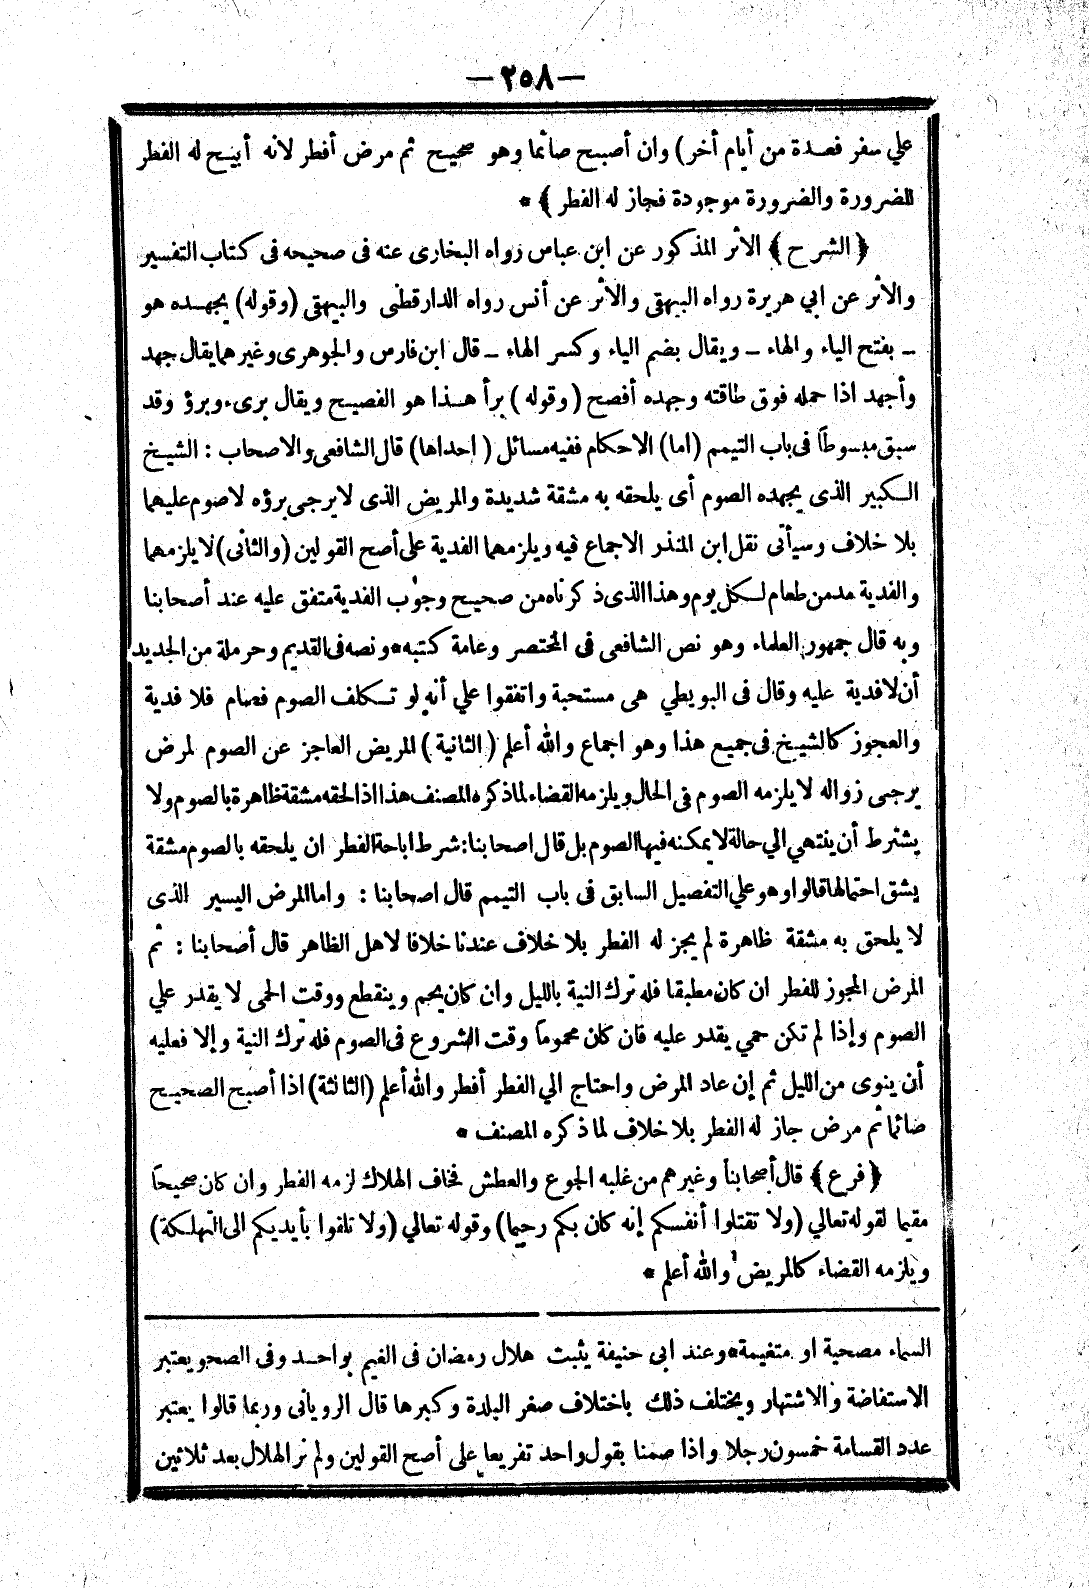 — ٢٥٨ —
علي سفر فعدة من أيام أخر) وان أصبح صائما وهو صحيح ثم مرض أفطر لانه أبيح له الفطر
للضرورة والضرورة موجودة فجاز له الفطر ﴾ *
﴿ الشرح ﴾ الاثر المذكور عن ابن عباس رواه البخارى عنه فى صحيحه فى كتاب التفسير
والاثر عن ابي هريرة رواه البيهقى والاثر عن أنس رواه الدارقطنى والبيهقى (وقوله) يجهده هو
ــ بفتح الياء والهاء ــ ويقال بضم الياء وكسر الهاء ــ قال ابن فارس والجوهرى وغيرهما يقال جهد
وأجهد اذا حمله فوق طاقته وجهده أفصح (وقوله) برأ هذا هو الفصيح ويقال برىء وبرؤ وقد
سبق مبسوطا فى باب التيمم (اما) الاحكام ففيه مسائل (احداها) قال الشافعى والاصحاب : الشيخ
الكبير الذى يجهده الصوم أى يلحقه به مشقة شديدة والمريض الذى لا يرجى برؤه لا صوم عليهما
بلا خلاف وسيأتى نقل ابن المنذر الاجماع فيه ويلزمهما الفدية على أصح القولين (والثانى) لا يلزمهما
والفدية مد من طعام لكل يوم وهذا الذى ذكرناه من صحيح وجوب الفدية متفق عليه عند أصحابنا
وبه قال جمهور العلماء وهو نص الشافعى فى المختصر وعامة كتبه * ونصه فى القديم وحرملة من الجديد
أن لا فدية عليه وقال فى البويطي هى مستحبة واتفقوا علي أنه لو تكلف الصوم فصام فلا فدية
والعجوز كالشيخ فى جميع هذا وهو اجماع والله أعلم (الثانية) المريض العاجز عن الصوم لمرض
يرجى زواله لا يلزمه الصوم فى الحال ويلزمه القضاء لما ذكره المصنف هذا اذا لحقه مشقة ظاهرة بالصوم ولا
يشترط أن ينتهي الي حالة لا يمكنه فيها الصوم بل قال اصحابنا: شرط اباحة الفطر ان يلحقه بالصوم مشقة
يشق احتمالها قالوا وهو علي التفصيل السابق فى باب التيمم قال اصحابنا : واما المرض اليسير الذى
لا يلحق به مشقة ظاهرة لم يجز له الفطر بلا خلاف عندنا خلافا لاهل الظاهر قال أصحابنا : ثم
المرض المجوز للفطر ان كان مطبقا فله ترك النية بالليل وان كان يحم وينقطع ووقت الحمى لا يقدر علي
الصوم وإذا لم تكن حمي يقدر عليه فان كان محموما وقت الشروع فى الصوم فله ترك النية وإلا فعليه
أن ينوى من الليل ثم إن عاد المرض واحتاج الي الفطر أفطر والله أعلم (الثالثة) اذا أصبح الصحيح
صائما ثم مرض جاز له الفطر بلا خلاف لما ذكره المصنف *
﴿ فرع ﴾ قال أصحابنا وغيرهم من غلبه الجوع والعطش فخاف الهلاك لزمه الفطر وان كان صحيحا
مقيما لقوله تعالي (ولا تقتلوا أنفسكم إنه كان بكم رحيما) وقوله تعالي (ولا تلقوا بأيديكم الى التهلكة)
ويلزمه القضاء كالمريض والله أعلم *
السماء مصحية او متغيمة * وعند ابى حنيفة يثبت هلال رمضان فى الغيم بواحد وفى الصحو يعتبر
الاستفاضة والاشتهار ويختلف ذلك باختلاف صغر البلدة وكبرها قال الرويانى وربما قالوا يعتبر
عدد القسامة خمسون رجلا واذا صمنا بقول واحد تفريعا على أصح القولين ولم نر الهلال بعد ثلاثين